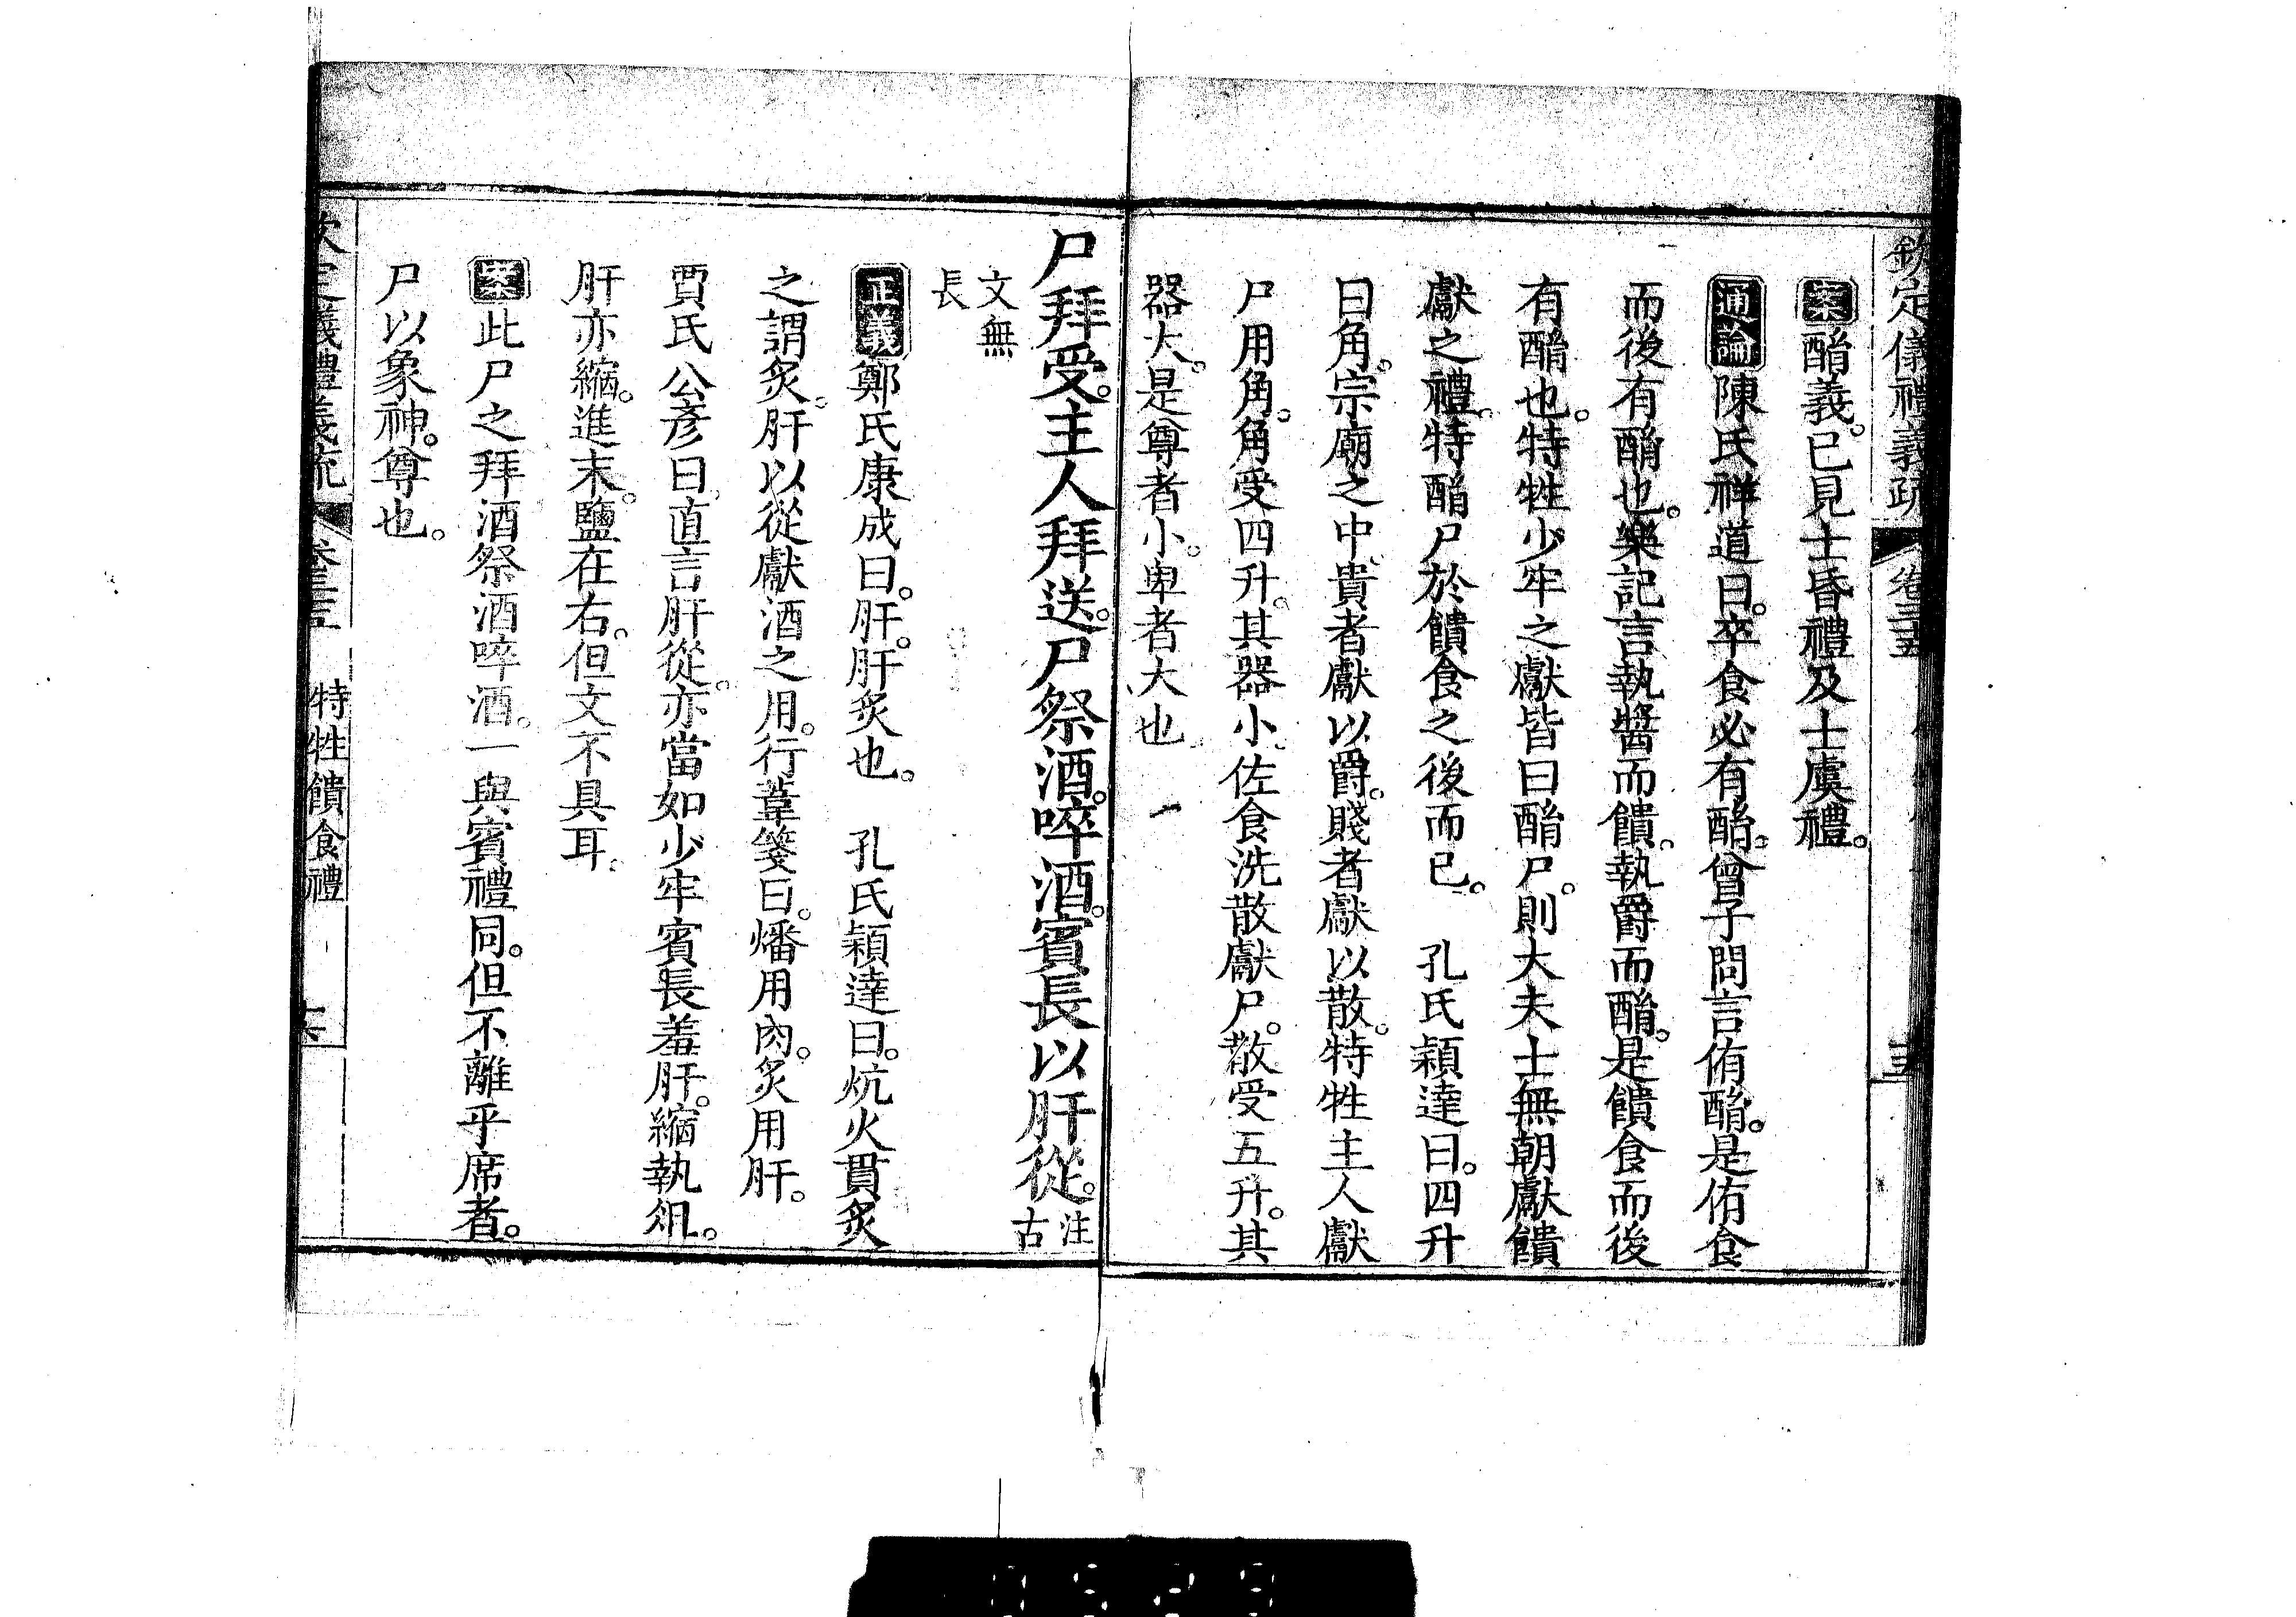 欽定儀禮義疏　卷三十五
案酳義。已見士昏禮及士虞禮。
通論陳氏祥道曰。卒食必有酳。曾子問言侑酳。是侑食
而後有酳也。樂記言執醬而饋。執爵而酳。是饋食而後
有酳也。特牲少牢之獻皆曰酳尸。則大夫士無朝獻饋
獻之禮。特酳尸於饋食之後而已。　孔氏穎達曰。四升
曰角。宗廟之中、貴者獻以爵。賤者獻以散。特牲主人獻
尸用角。角受四升。其器小。佐食洗散獻尸。散受五升。其
器大。是尊者小。卑者大也
尸拜受。主人拜送。尸祭酒。啐酒。賓長以肝從。注古
文無
長
正義鄭氏康成曰。肝。肝炙也。　孔氏穎達曰。炕火貫炙
之謂炙。肝以從獻酒之用。行葦箋曰。燔用肉。炙用肝。
賈氏公彥曰。直言肝從。亦當如少牢賓長羞肝。縮執俎。
肝亦縮。進末。鹽在右。但文不具耳。
案此尸之拜酒祭酒啐酒。一與賓禮同。但不離乎席者。
尸以象神。尊也。
特牲饋食禮